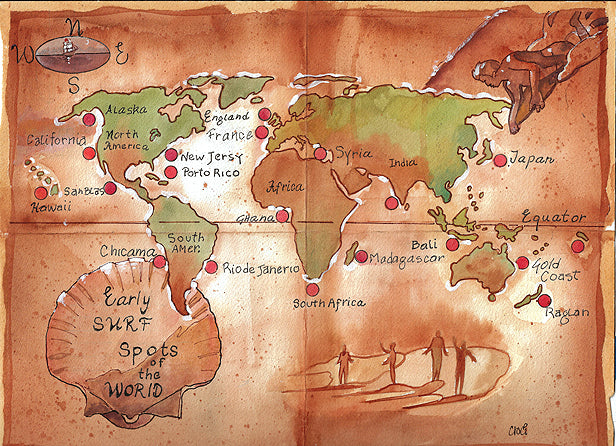 N
W
E
S
Alaska
England
California
North
America
France
New Jersy
Syria
India
Japan
San Blas
Porto Rico
Africa
Hawaii
Ghana
Equator
Chicama
South
Amer.
Rio de Janerio
Madagascar
Bali
Gold
Coast
South Africa
Raglan
Early
SURF
Spots
of
the
WORLD